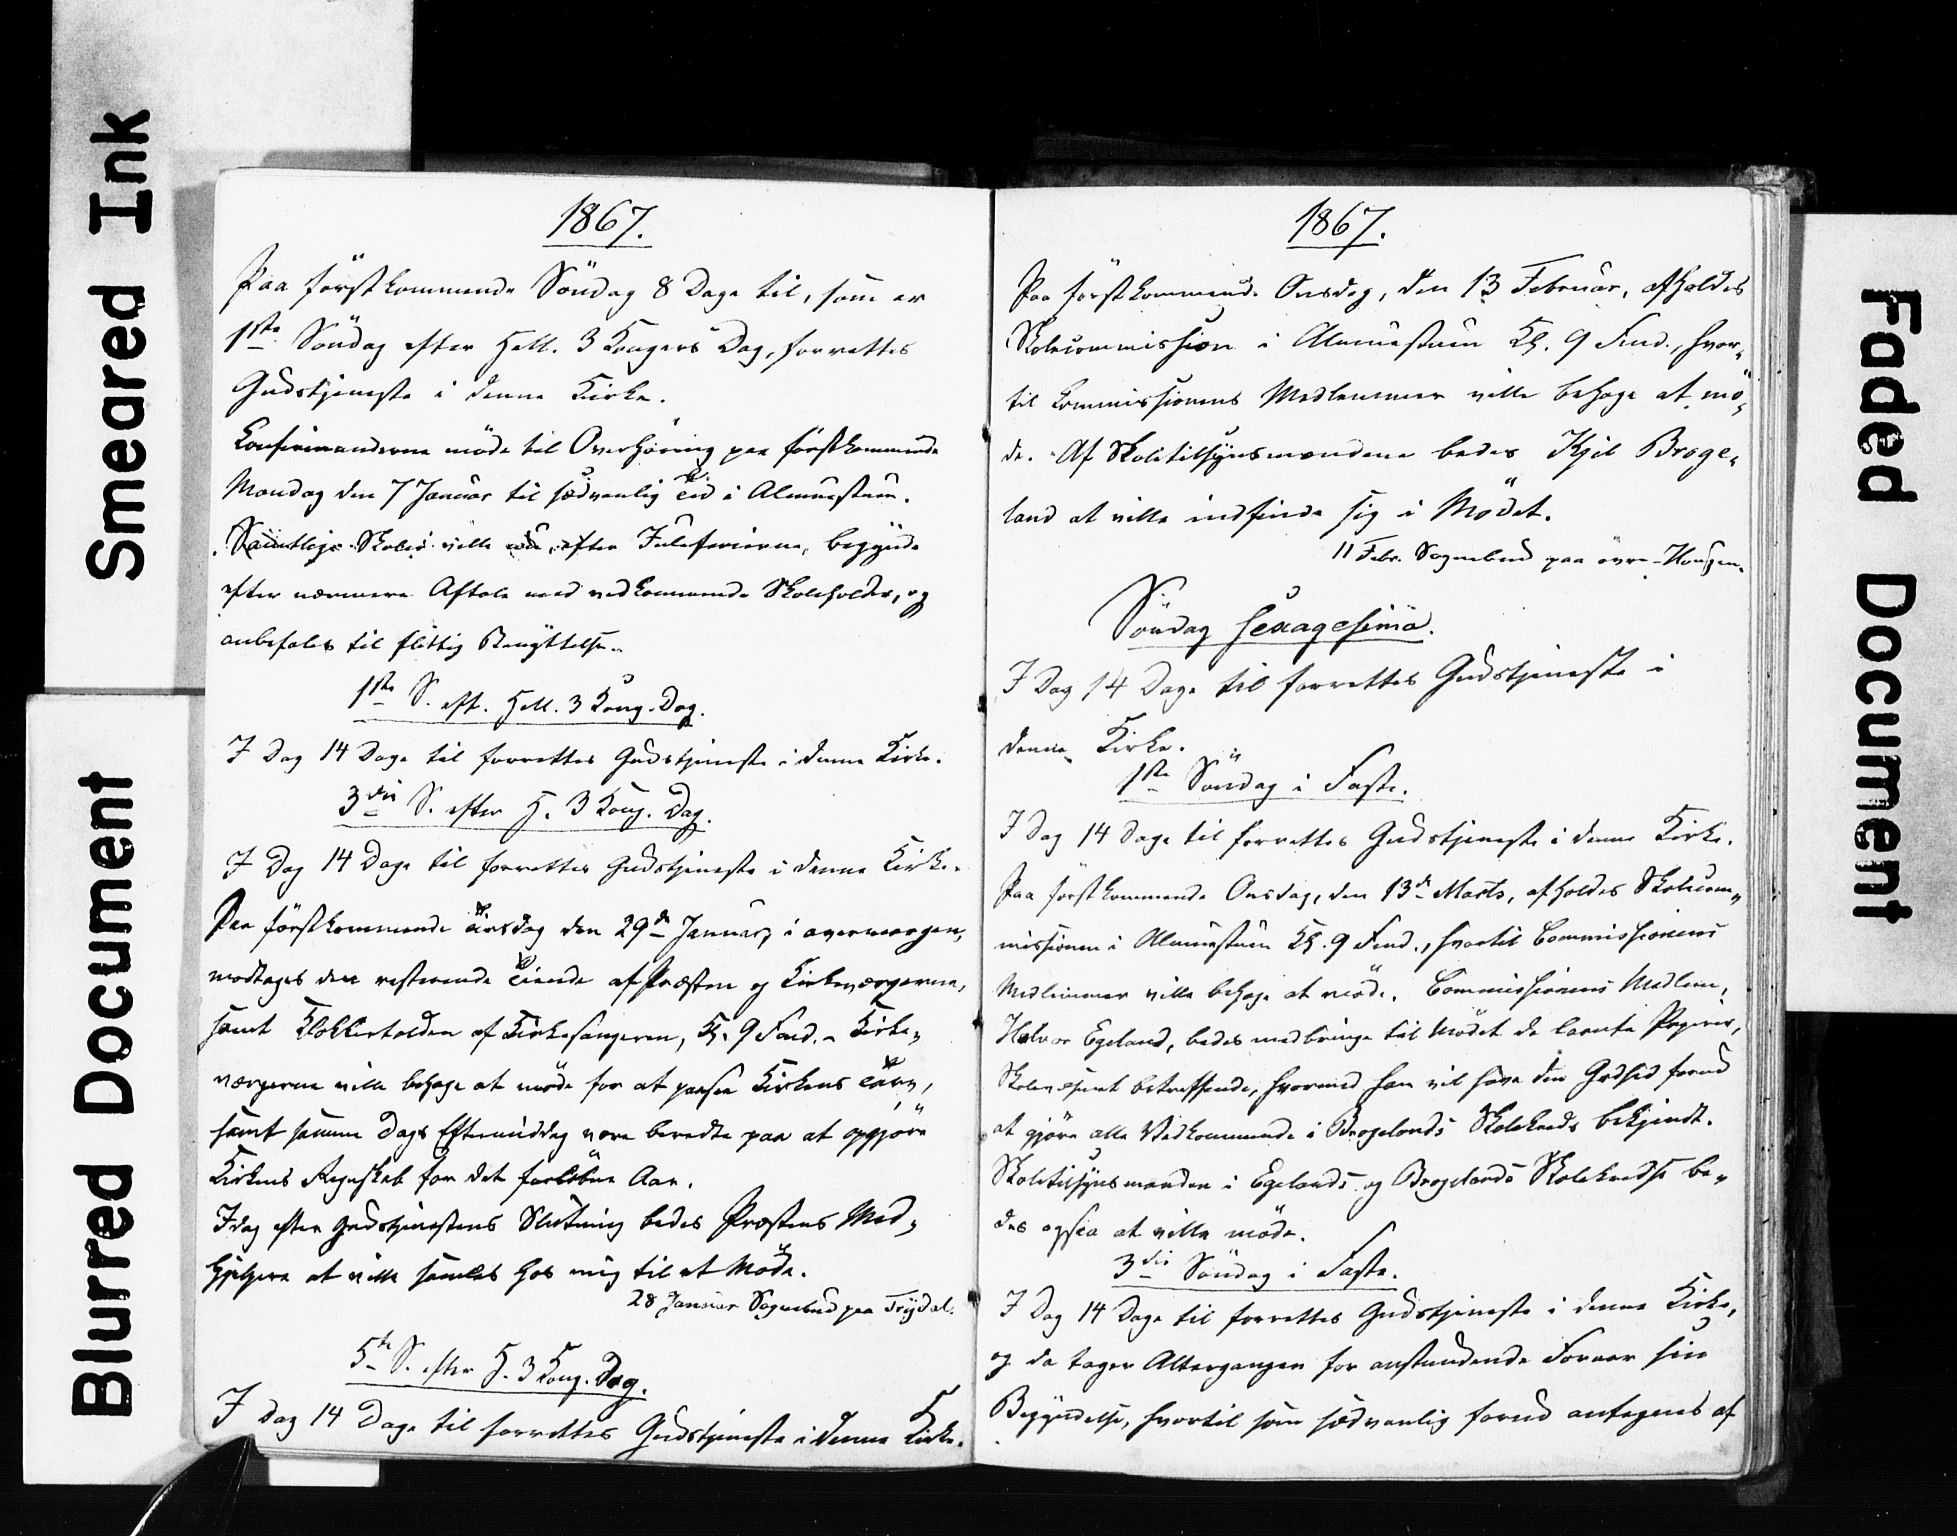 Smeared Ink
Blurred Document
Faded Document
1867.
Paa førstkommende Søndag 8 Dage til, som er
1ste Søndag efter Hell. 3 Kongers Dag, forrettes
Gudstjeneste i denne Kirke.
Konfirmanderne møde til Overhøring paa førstkommende
Mandag den 7 Januar til sædvanlig Tid i Almuestuen.
Samtlige Skoler ville nu, efter Juleferierne, begynde
efter nærmere Aftale med vedkommende Skoleholder, og
anbefales til flittig Benyttelse.
1ste S. eft. Hell. 3 Kong. Dag.
I Dag 14 Dage til forrettes Gudstjeneste i denne Kirke.
3die S. efter H. 3 Kong. Dag.
I Dag 14 Dage til forrettes Gudstjeneste i denne Kirke.
Paa førstkommende Tirsdag den 29de Januar, i overmorgen,
modtages den resterende Tiende af Præsten og Kirkeværgerne,
samt Klokkertolden af Kirkesangeren, Kl. 9 Formd. - Kirke-
værgerne ville behage at møde for at passe Kirkens Tarv,
samt samme Dags Eftermiddag være beredte paa at opgjøre
Kirkens Regnskab for det forløbne Aar.
Idag efter Gudstjenestens Slutning bedes Præstens Med-
hjelpere at ville samles hos mig til et Møde.
28 Januar Sognebud paa Trydal.
5te S. efter H. 3 Kong. Dag.
I Dag 14 Dage til forrettes Gudstjeneste i denne Kirke.
1867.
Paa førstkommende Onsdag, den 13 Februar, afholdes
Skolecommission i Almuestuen Kl. 9 Fmd., hvor-
til Commissionens Medlemmer ville behage at mø-
de. Af Skoletilsynsmændene bedes Kjil Broge-
land at ville indfinde sig i Mødet.
11 Febr. Sognebud paa øvre-Haugen.
Søndag sexagesima.
I Dag 14 Dage til forrettes Gudstjeneste i
denne Kirke.
1ste Søndag i Faste.
I Dag 14 Dage til forrettes Gudstjeneste i denne Kirke.
Paa førstkommende Onsdag, den 13de Marts, afholdes Skolecom-
missionen i Almuestuen Kl. 9 Fmd., hvortil Commissionens
Medlemmer ville behage at møde. Commissionens Medlem,
Halvor Egeland, bedes medbringe til Mødet de laante Papirer,
Skolevæsenet betreffende, hvormed han vil have den Godhed forud
at gjøre alle Vedkommende i Brogelands Skolekreds bekjendt.
Skoletilsynsmanden i Egelands og Brogelands Skolekredse be-
des ogsaa at ville møde.
3die Søndag i Faste.
I Dag 14 Dage til forrettes Gudstjeneste i denne Kirke,
og da tager Altergangen for anstundende Foraar sin
Begyndelse, hvortil som sædvanlig forud antegnes af